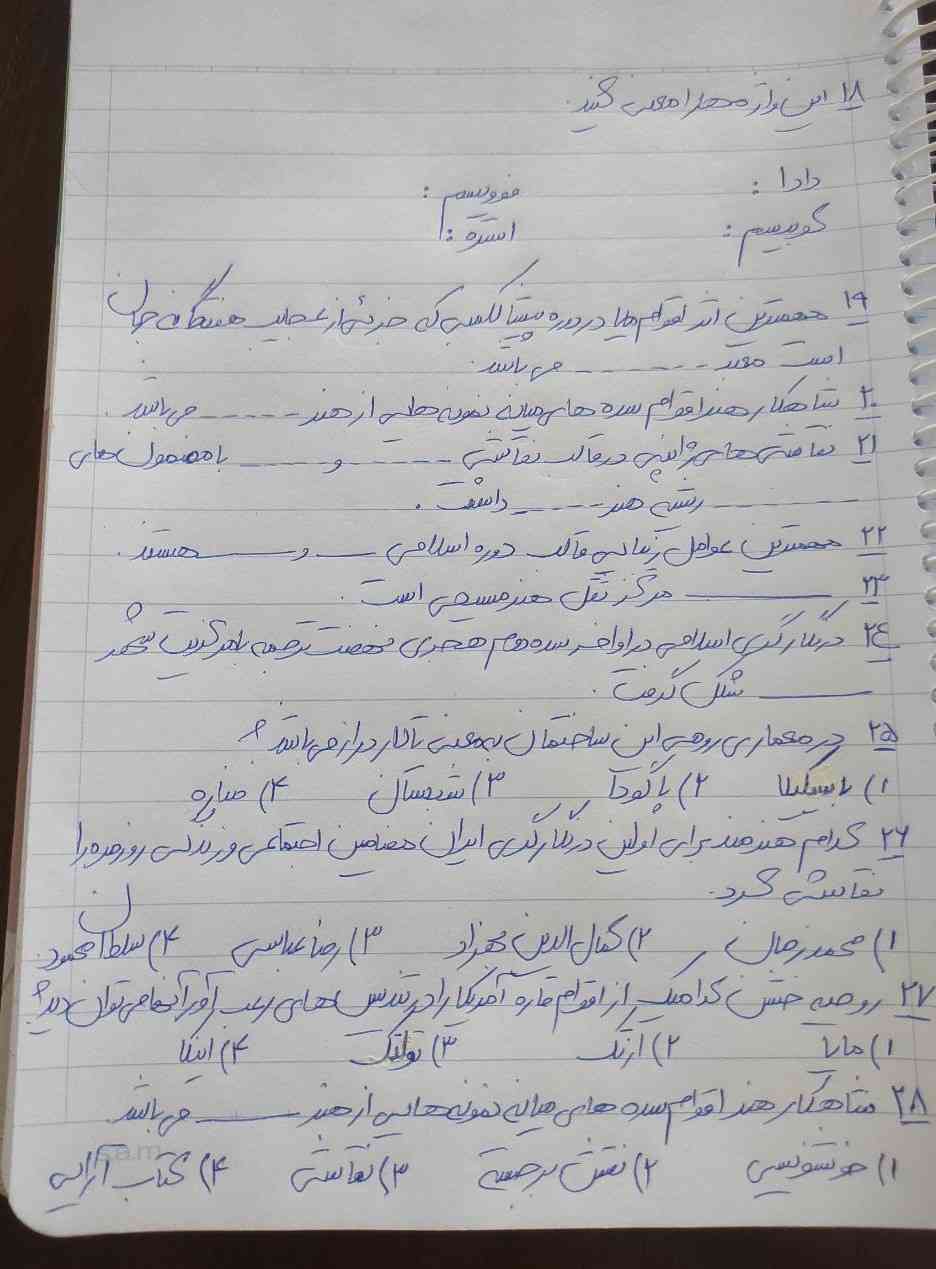 ۱۸ این واژه ها را معنی کنید.
دادا : فوویسم :
کوبیسم : استوپه :
۱۹ مهمترین اثر اقوام مایا در دوره پیشاکلمبی که جزئی از عجایب هفتگانه جهان
است معبد ------- می باشد.
۲۰ شاهکار هنر اقوام سده های میانه نمونه هایی از هنر ----- می باشد.
۲۱ نقاشی های ژاپنی در قالب نقاشی ------ و ------ با مضمون های
------- ریشه هنر ----- داشت.
۲۲ مهمترین عوامل تزئیاتی قالب دوره اسلامی ـــ و ـــــ هستند.
۲۳ ــــــــ مرکز ثقل هنر مسیحی است.
۲۴ در نگارگری اسلامی در اواخر سده هجری نهضت ترجمه با مرکزیت شهر
ــــــــ شکل گرفت.
۲۵ در معماری رومی این ساختمان به معنی تالار دراز می باشد؟
۱) باسیلیکا ۲) پاگودا ۳) شبستان ۴) مناره
۲۶ کدام هنرمند برای اولین در نگارگری ایران مضامین اجتماعی و زندگی روزمره را
نقاشی کرد.
۱) محمد زمان ۲) کمال الدین بهزاد ۳) رضا عباسی ۴) سلطان محمود
۲۷ روحیه خشن کدامیک از اقوام قاره آمریکا را در تندیس های رعب آور آنها می توان دید؟
۱) مایا ۲) ازتک ۳) تولتک ۴) اینکا
۲۸ شاهکار هنر اقوام سده های میانه نمونه هایی از هنر ـــــ می باشد.
۱) خوشنویسی ۲) نقش برجسته ۳) نقاشی ۴) کتاب آرایی